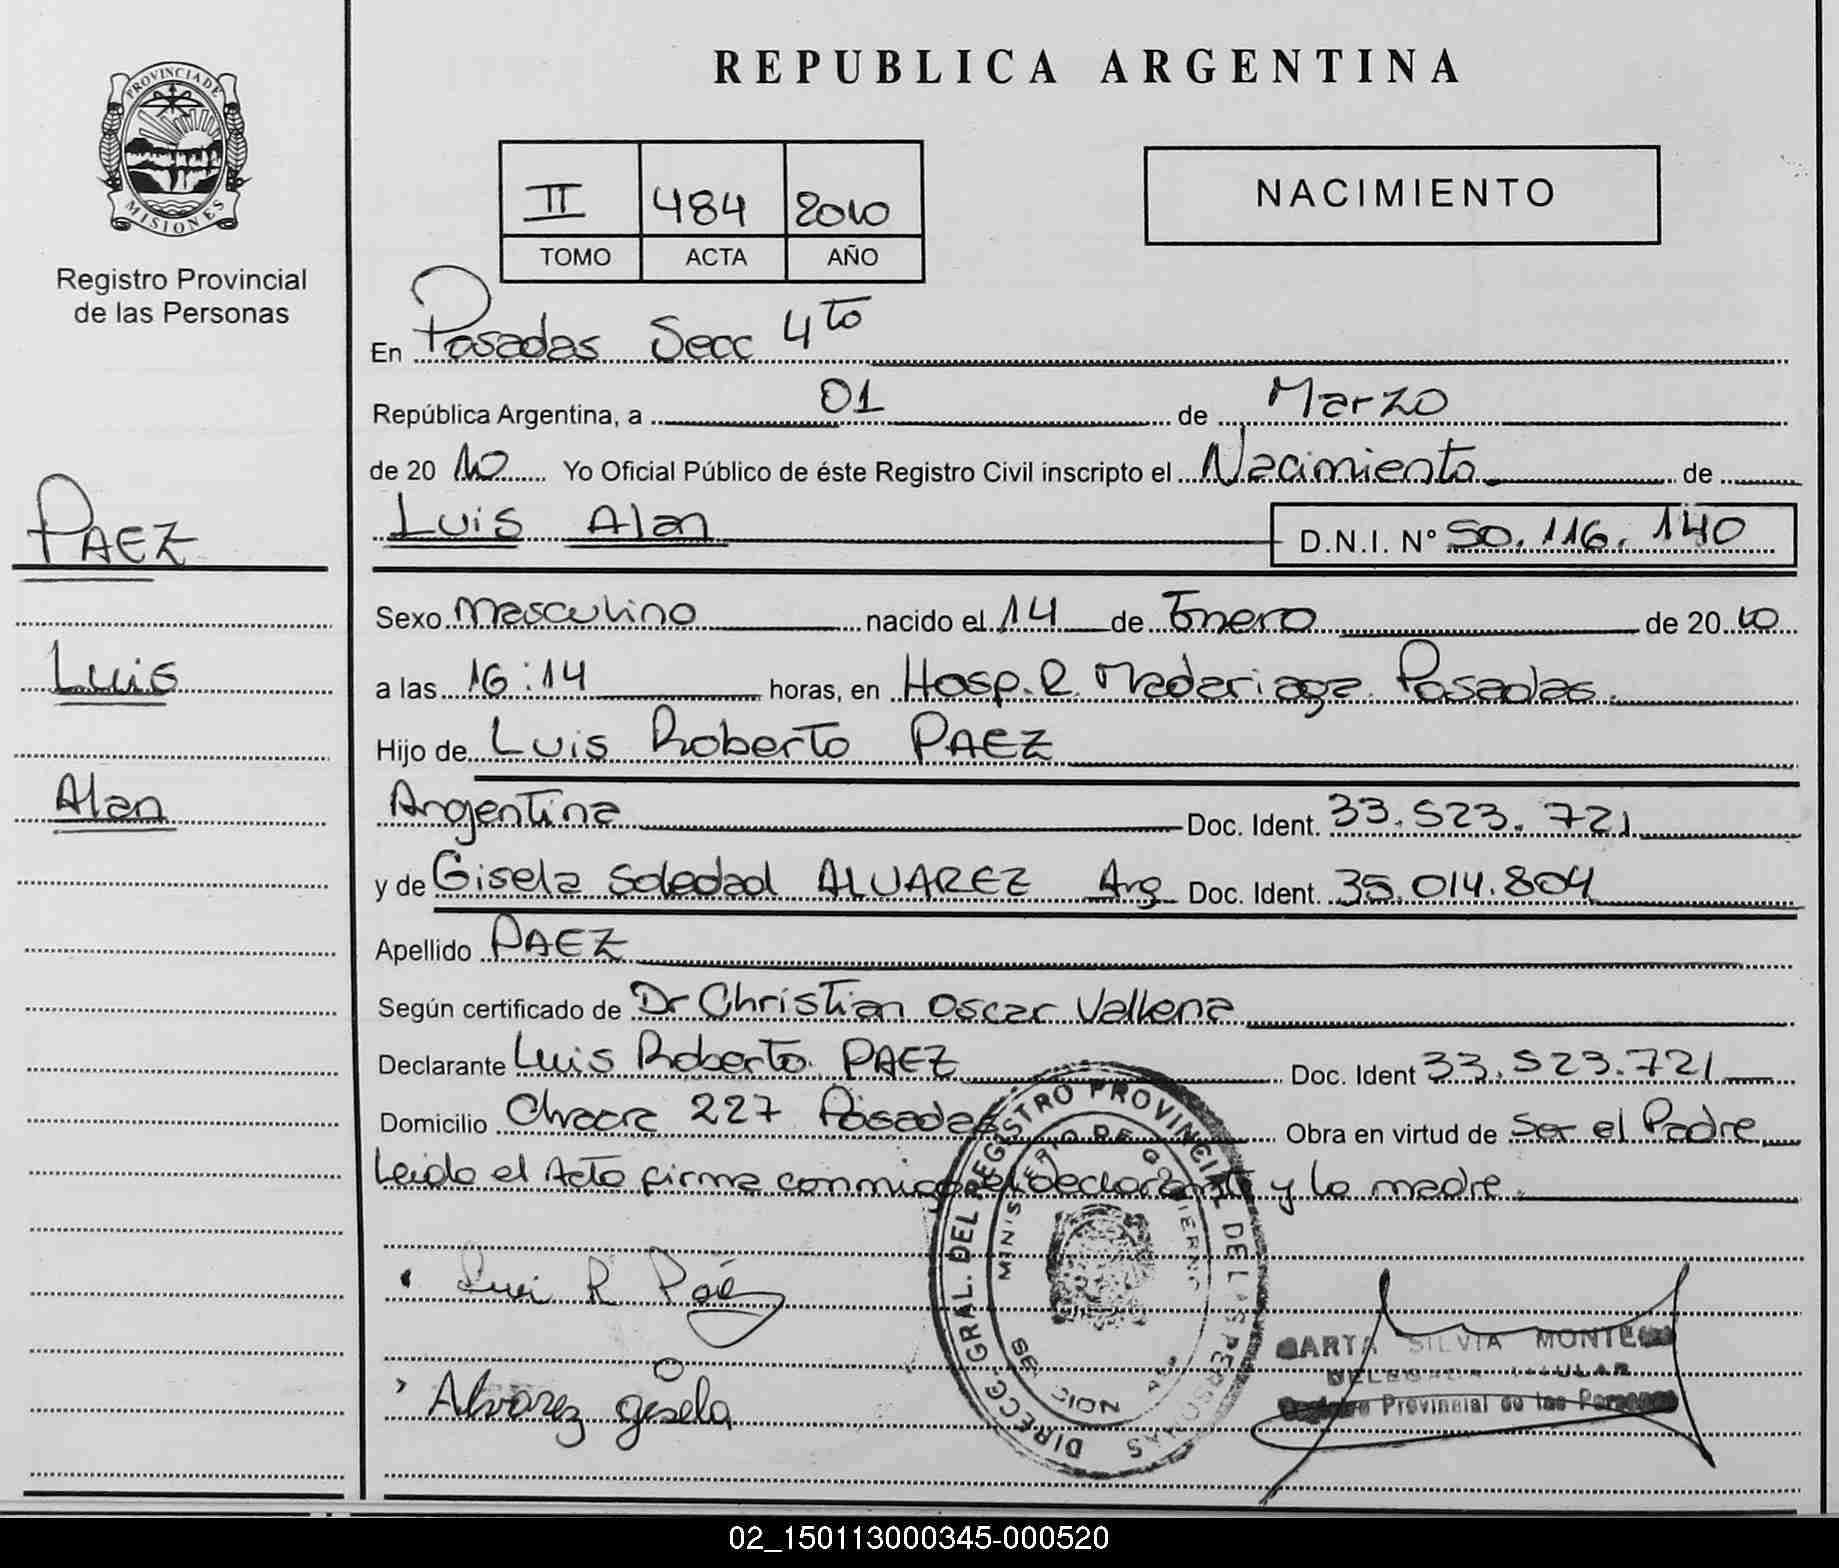 PROVINCIA DE
MISIONES
Registro Provincial
de las Personas
PAEZ
Luis
Alan
REPUBLICA ARGENTINA
II 484 2010
TOMO ACTA AÑO
NACIMIENTO
En Posadas Secc 4to
República Argentina, a 01 de Marzo
de 2010 Yo Oficial Público de éste Registro Civil inscripto el Nacimiento de
Luis Alan D.N.I. N° 50.116.140
Sexo Masculino nacido el 14 de Enero de 2010
a las 16:14 horas, en Hosp. R. Madariaga Posadas.
Hijo de Luis Roberto PAEZ
Argentina Doc. Ident. 33.523.721
y de Gisela Soledad ALVAREZ Arg Doc. Ident. 35.014.804
Apellido PAEZ
Según certificado de Dr Christian Oscar Vallena
Declarante Luis Roberto PAEZ Doc. Ident 33.523.721
Domicilio Chacra 227 Posadas Obra en virtud de Ser el Padre
Leido el Acta firma conmigo el Declarante y la madre.
DIRECC. GRAL. DEL REGISTRO PROVINCIAL DE LAS PERSONAS
MINISTERIO DE GOBIERNO
Luis R Paéz
Alvarez gisela
SILVIA
Provincial de las Personas
02_150113000345-000520